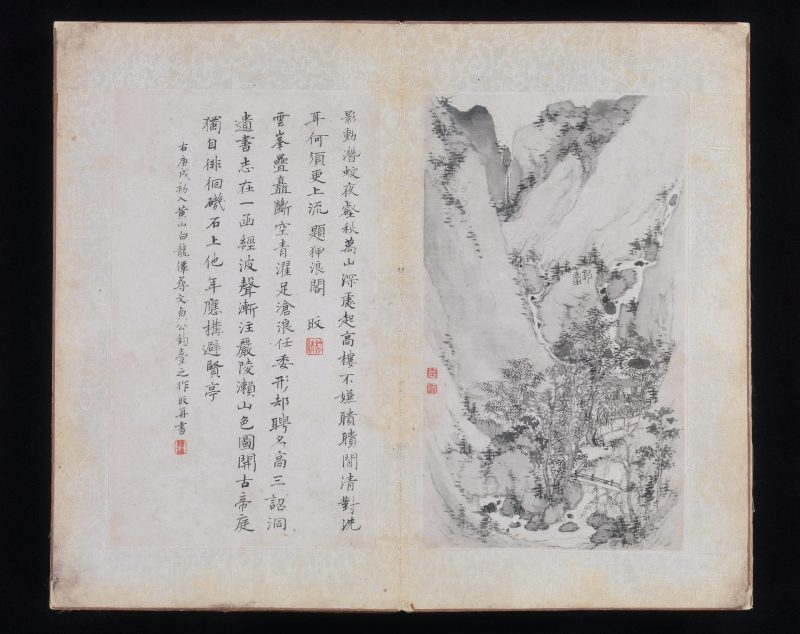 影動潛蛟夜壑秋萬山深處起高樓不嫌聵聵閒清對洗
耳何須更上流 題狎浪閣 旼
雲峯疊矗斷空青濯足滄浪任委形却聘名高三詔洞
遺書志在一函經波聲漸注嚴陵瀨山色圖開古帝庭
獨自徘徊磯石上他年應構避賢亭
右庚戌初入黃山白龍潭尋文貞公釣臺之作旼再書